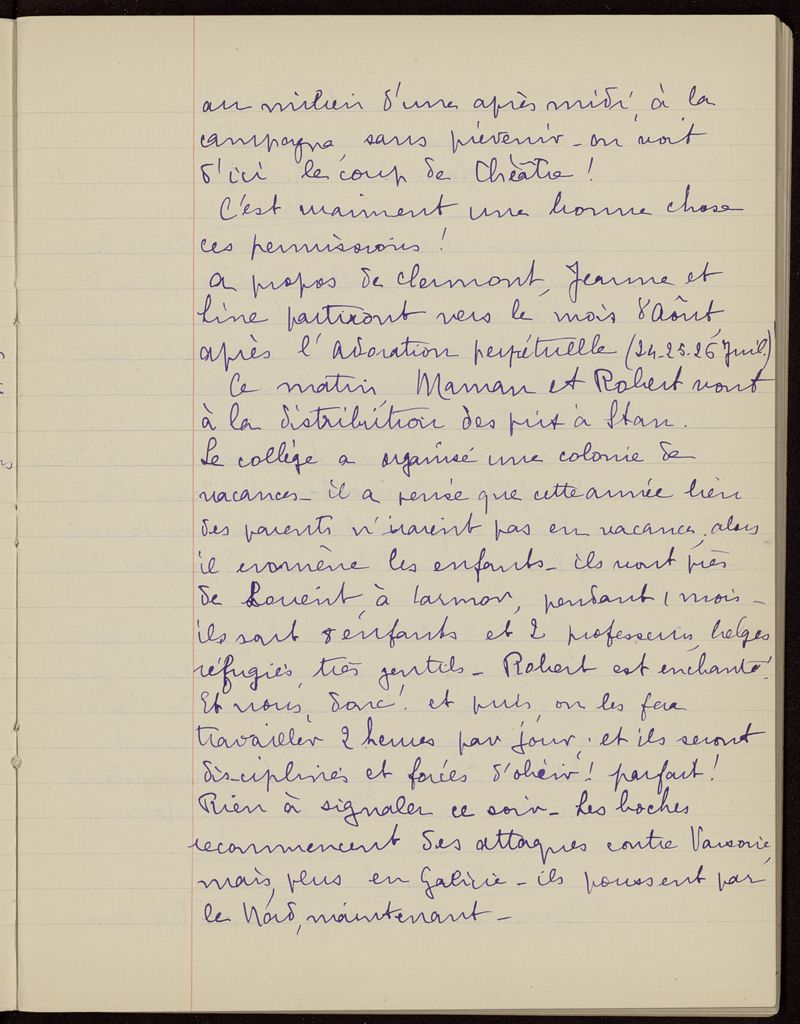 au milieu d'une après midi, à la
campagne, sans prévenir - on voit
d'ici le coup de théâtre !
C'est vraiment une bonne chose
ces permissions !
A propos de Clermont, Jeanne et
Line partiront vers le mois d'Août,
après l'Adoration perpétuelle (24-25-26 Juil.)
Ce matin, Maman et Robert vont
à la distribution des prix à Stan.
Le collège a organisé une colonie de
vacances - il a pensé que cette année bien
des parents n'iraient pas en vacances, alors
il emmène les enfants - ils vont près
de Lorient, à Larmor, pendant 1 mois -
ils sont 8 enfants et 2 professeurs, belges
réfugiés, très gentils - Robert est enchanté !
Et nous, donc ! et puis, on les fera
travailler 2 heures par jour, et ils seront
disciplinés et forcés d'obéir ! parfait !
Rien à signaler ce soir - Les boches
recommencent des attaques contre Varsovie,
mais, plus en Galicie - ils poussent par
le Nord, maintenant -